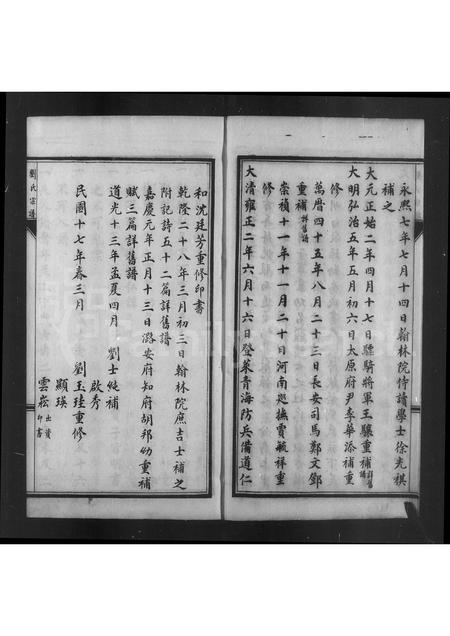 永熙七年七月十四日翰林院侍讀學士徐光祺
補之
大元正始二年四月十七日驃騎將軍王驤重補詳舊譜
大明弘治五年五月初六日太原府尹李華添補重
修
萬曆四十五年八月二十三日長安司馬鄭文鄧
重補詳舊譜
崇禎十一年十一月二十日河南廵撫賈毓祥重
修
大清雍正二年六月十六日登萊青海防兵備道仁
和沈廷芳重修印書
乾隆二十八年三月初三日翰林院庶吉士補之
附記詩五十二篇詳舊譜
嘉慶元年正月十三日潞安府知府胡邦幼重補
賦三篇詳舊譜
道光十三年孟夏四月 劉士純補
啟秀
民國十七年春三月 劉玉珪重修
顯瑛
雲崧 出資印書
劉氏宗譜